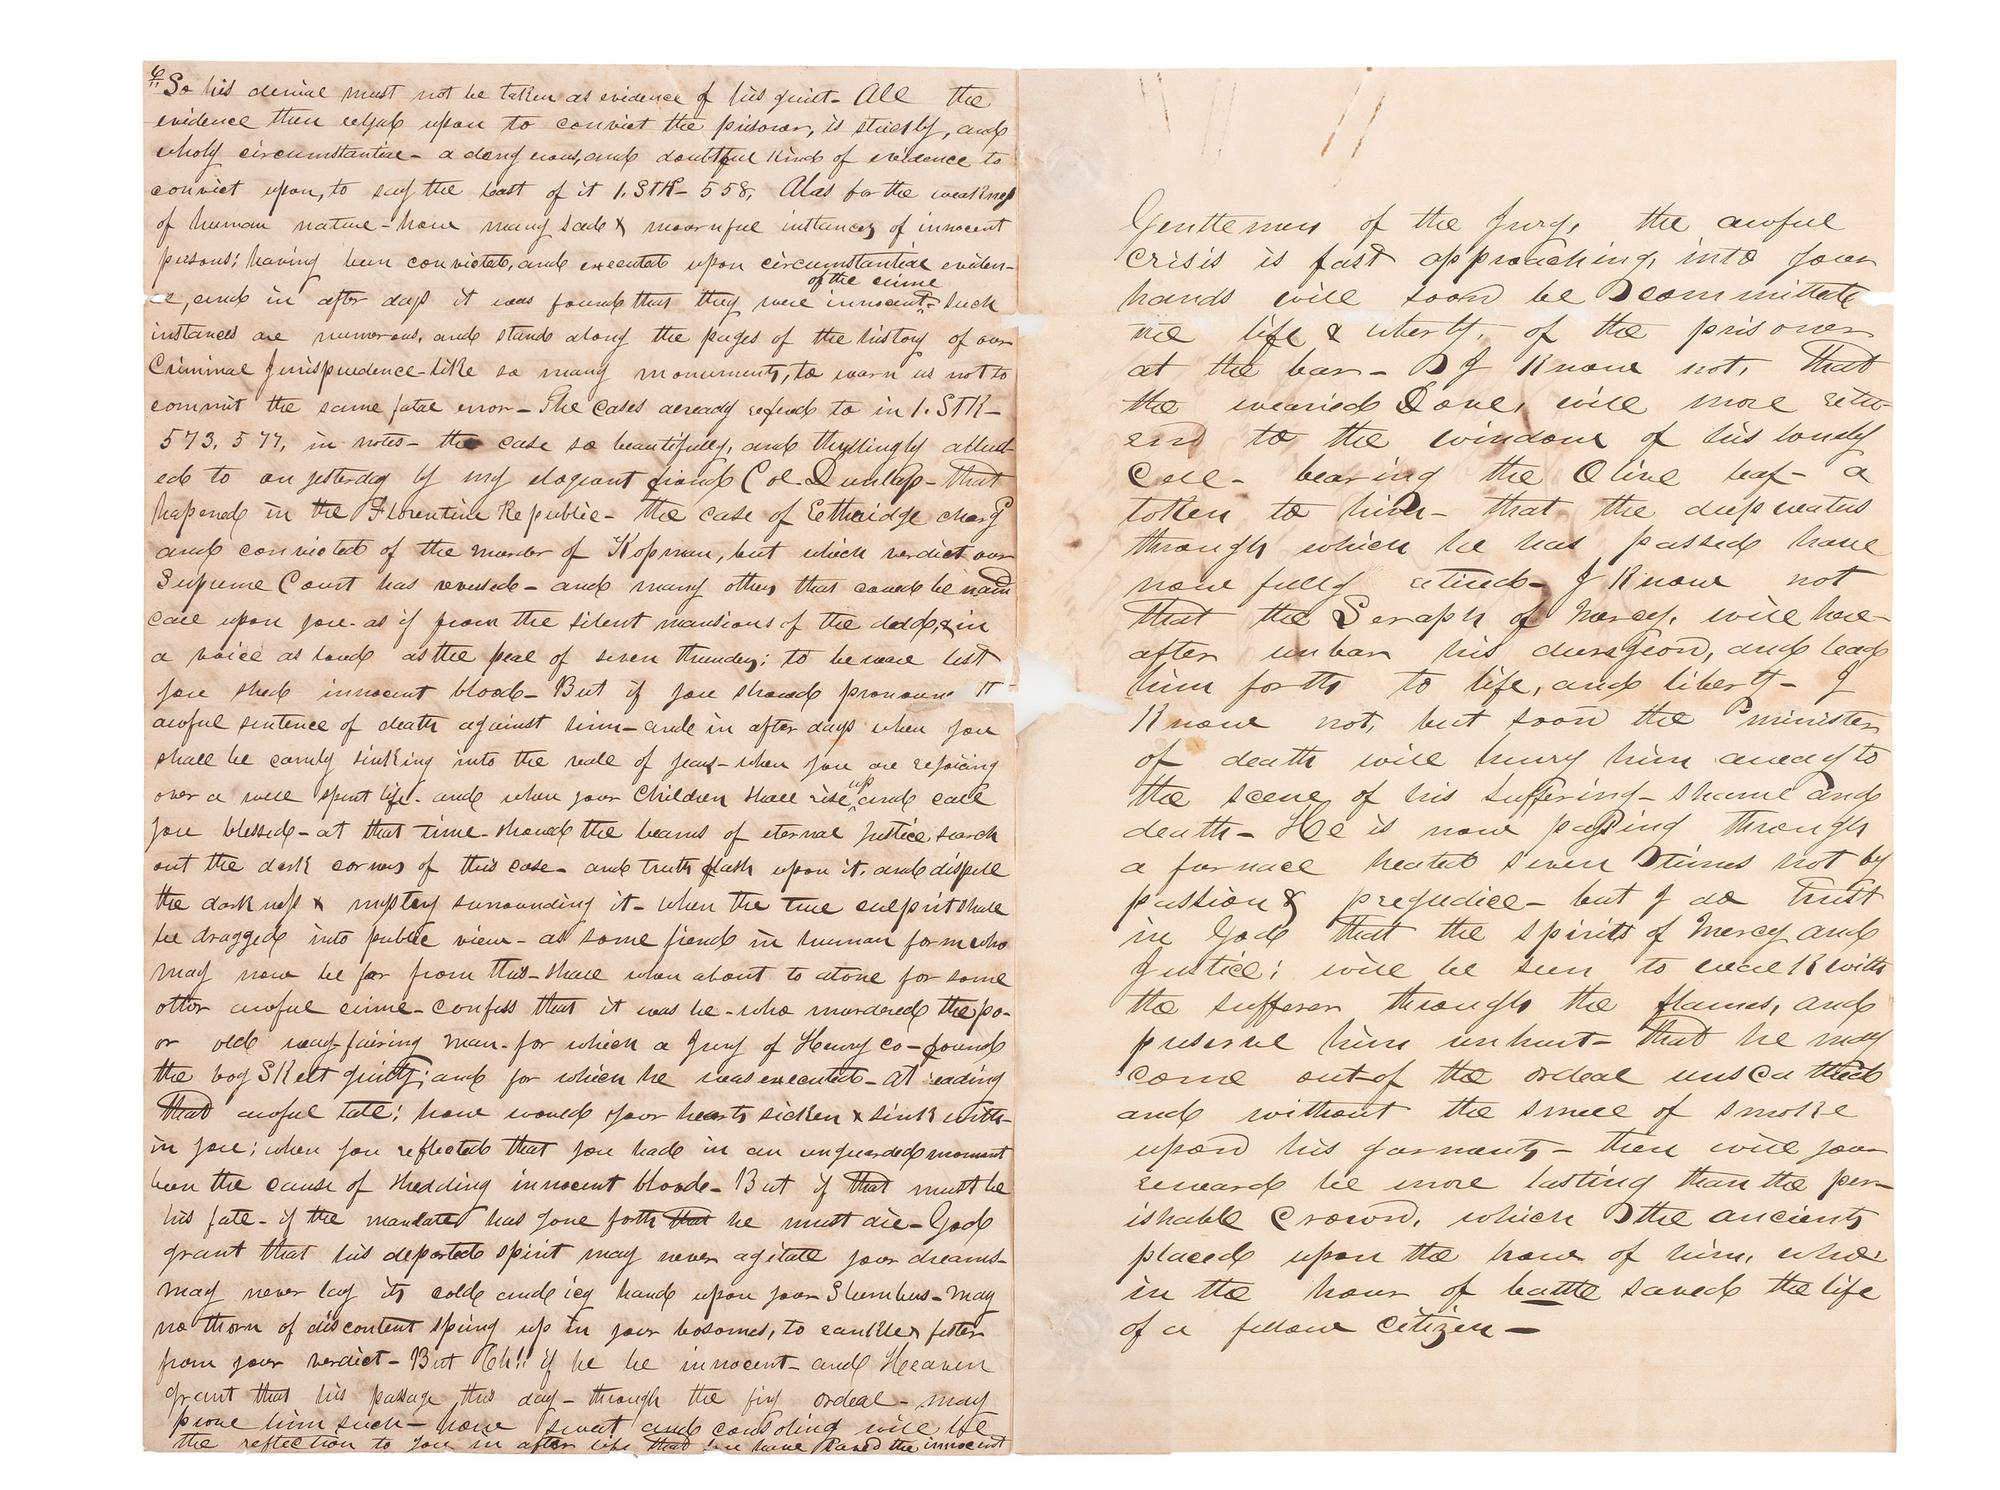 6
So his denial must not be taken as evidence of his guilt- All the
evidence then relied upon to convict the prisoner, is strictly, and
wholy circumstantial- a dangerous, and doubtful kind of evidence to
convict upon, to say the least of it 1. STK- 558, Alas for the weakness
of human nature- how many sad & mournful instances of innocent
persons; having been convicted, and executed upon circumstantial eviden-
of the crime
ce, and in after days it was found that they were innocent- Such
instances are numerous, and stand along the pages of the history of our
Criminal Jurisprudence- like so many monuments, to warn us not to
commit the same fatal error- The cases already refered to in 1. STK-
573, 577, in notes- the case so beautifully, and thrillingly allud-
ed to on yesterday by my eloquent friend Col. Dunlap- that
hapened in the Florentine Republic- the case of Etheridge charg
and convicted of the murder of Kopman, but which verdict our
Supreme Court has reversed- and many others that could be named
call upon you- as if from the silent mansions of the dead, & in
a voice as loud as the peal of seven thunders; to beware lest
you shed innocent blood- But if you should pronounce
awful sentence of death against him- and in after days when you
shall be calmly sinking into the vale of years- when you are rejoicing
up
over a well spent life- and when your children shall rise and call
you blessed- at that time- should the beams of eternal Justice search
out the dark corners of this case- and truth flash upon it, and dispell
the darkness & mystery surrounding it- when the true culprit shall
be dragged into public view- as some fiend in human form who
may now be far from this- shall when about to atone for some
other awful crime- confess that it was he- who murdered the po-
or old way-fairing man- for which a Jury of Henry Co- found
the boy Skelt guilty; and for which he was executed- At reading
that awful tale; how would your hearts sicken & sink with-
in you; when you reflected that you had in an unguarded moment
been the cause of shedding innocent blood- But if that must be
his fate- if the mandate has gone forth that he must die- God
grant that his departed spirit may never agitate your dreams-
may never lay its cold and icy hand upon your Slumbers- may
no thorn of discontent spring up in your bosomes, to rankle & fester
from your verdict- But Oh!! if he be innocent- and Heaven
grant that his passage this day- through the firy ordeal- may
prove him such- how sweet and consoling will be
the reflection to you in after life that you have saved the innocent
Gentlemen of the Jury, the awful
crisis is fast approaching, into your
hands will soon be committed
the life & liberty, of the prisoner
at the bar- I know not, that
the wearied Dove, will more retu-
rn to the window of his lonely
Cell- bearing the Olive leaf- a
token to him- that the deep waters
through which he has passed have
now fully retired- I know not
that the Seraph of Mercy, will here-
after unbar his dungeon, and lead
him forth to life, and liberty- I
Know not, but soon the minister
of death will hurry him away to
the scene of his suffering- shame and
death- He is now passing through
a furnace heated seven times not by
passion & prejudice- but I do trust
in God that the spirits of Mercy and
Justice; will be seen to walk with
the sufferer through the flames, and
preserve him unhurt- that he may
come out of the ordeal unscathed
and without the smell of smoke
upon his garments- then will your
reward be more lasting than the per-
ishable Crown, which the ancients
placed upon the brow of him, who
in the hour of battle saved the life
of a fellow citizen-